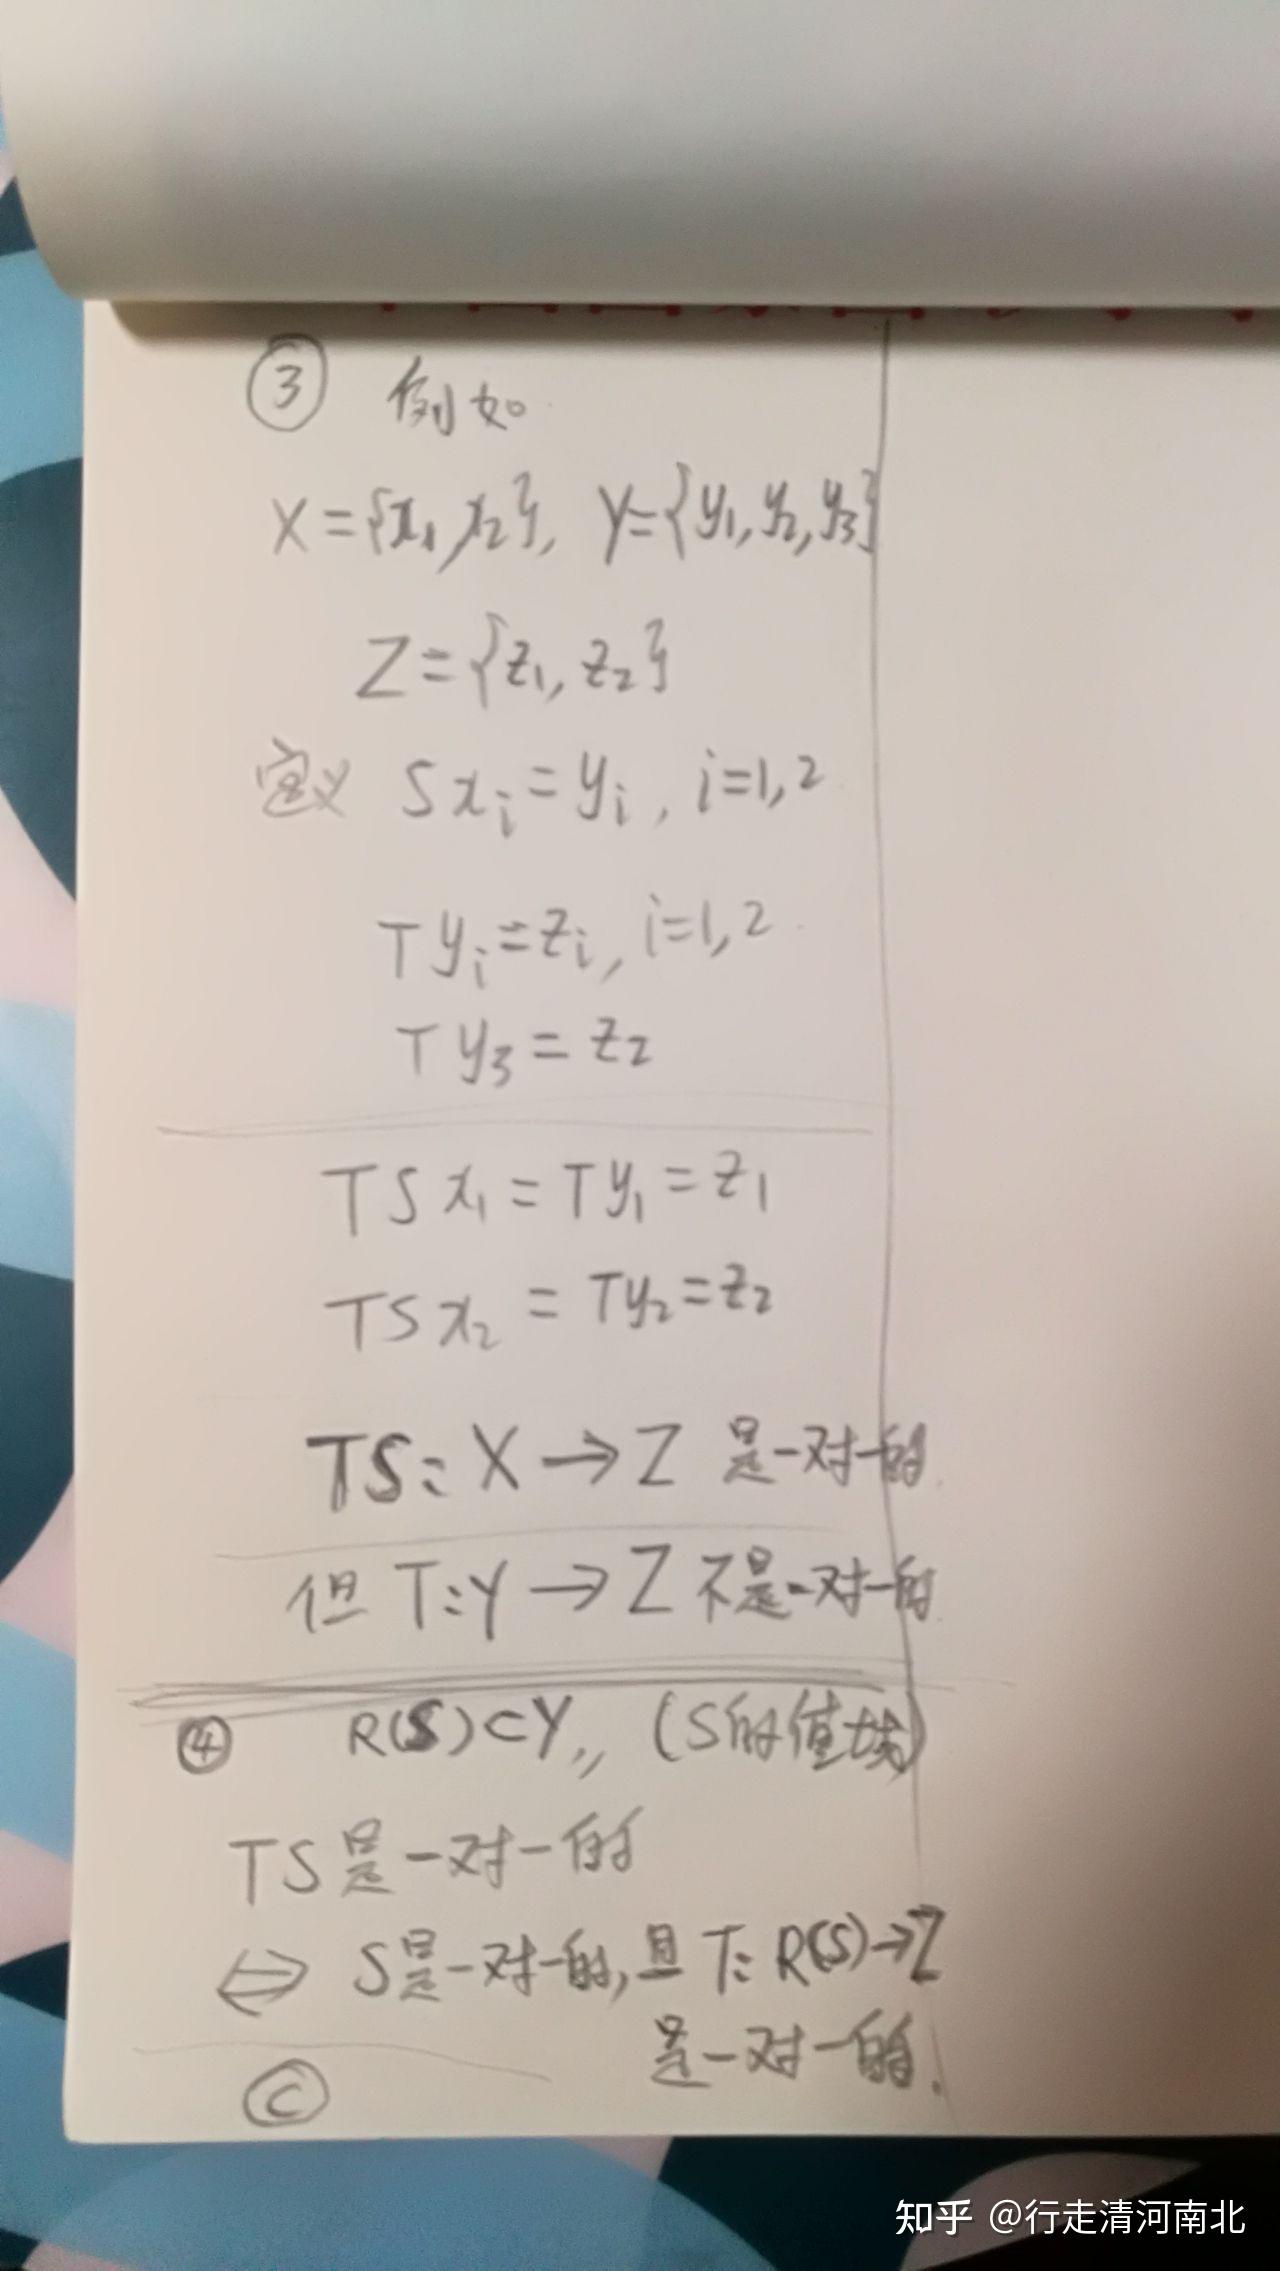 ③ 例如
X={x₁,x₂}, Y={y₁,y₂,y₃}
Z={z₁,z₂}
定义 Sxᵢ=yᵢ, i=1,2
Tyᵢ=zᵢ, i=1,2
Ty₃=z₂
TSx₁=Ty₁=z₁
TSx₂=Ty₂=z₂
TS:X→Z 是一对一的.
但 T:Y→Z 不是一对一的.
④ R(S)⊂Y,, (S的值域)
TS是一对一的
⇔ S是一对一的,且T:R(S)→Z
是一对一的.
Ⓒ
知乎 @行走清河南北